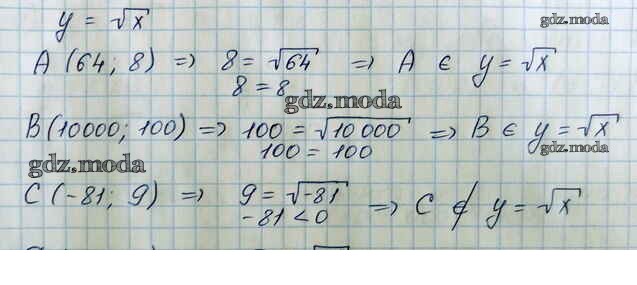 y = √x
gdz.moda
A (64; 8) => 8 = √64 => A ∈ y = √x
8 = 8
gdz.moda
B (10000; 100) => 100 = √10 000 => B ∈ y = √x
100 = 100
gdz.moda
gdz.moda
C (-81; 9) => 9 = √-81 => C ∉ y = √x
-81 < 0